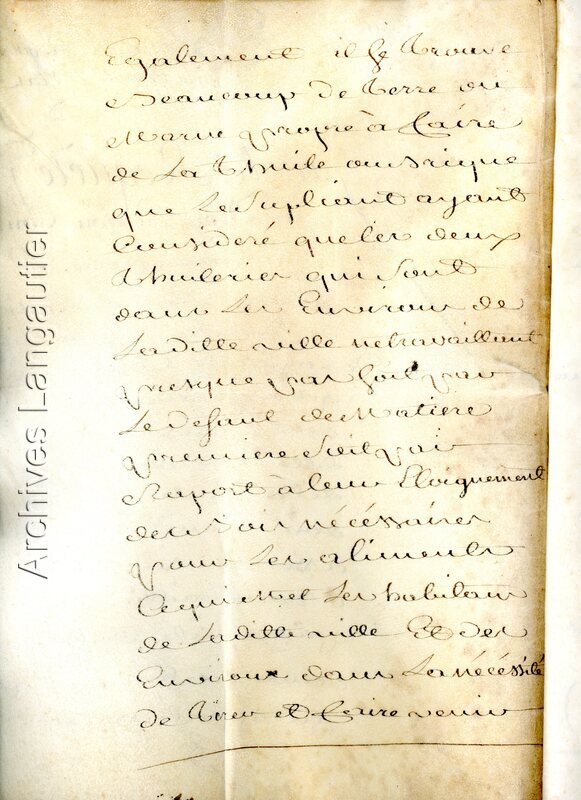 Egalement il se trouve
Beaucoup de Terre ou
Marne propre à faire
de La Thuile ou Brique
que Le Supliant ayant
Consideré que les deux
Thuileries qui sont
dans Les Environs de
Ladille ville ne travaillant
presque pas soit par
Le Defaut de Matiere
premiere soit par
Raport à leur Eloignement
des Bois nécéssaires
pour Les aliments
Ce qui met Les habitans
de Ladille ville Et des
Environs dans La nécéssité
de Tirer et faire venir
Archives Langautier